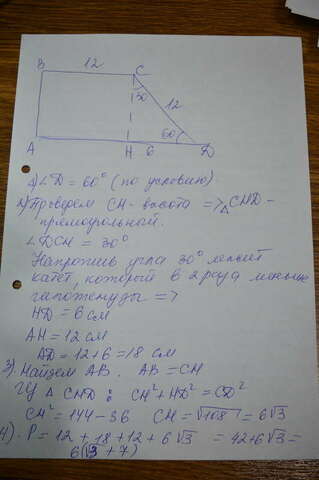 B 12 C
30
12
60
A H 6 D
1) ∠D = 60° (по условию).
2) Проведем CH - высота => △CHD -
прямоугольный.
∠DCH = 30°
Напротив угла 30° лежит
катет, который в 2 раза меньше
гипотенузы =>
HD = 6 см
AH = 12 см
AD = 12+6 = 18 см
3). Найдем AB. AB = CH
Из △ CHD: CH² + HD² = CD²
CH² = 144 - 36 CH = √108 = 6√3
4). P = 12 + 18 + 12 + 6√3 = 42+6√3 =
6(√3 + 7)